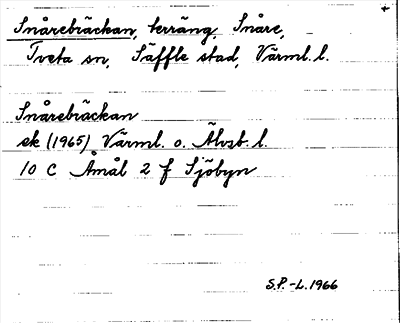 Snårebräckan, terräng, Snåre,
Tveta sn, Säffle stad, Värml. l.
Snårebräckan
ek (1965) Värml. o. Älvsb. l.
10 C Åmål 2 f Sjöbyn
S.P.-L. 1966